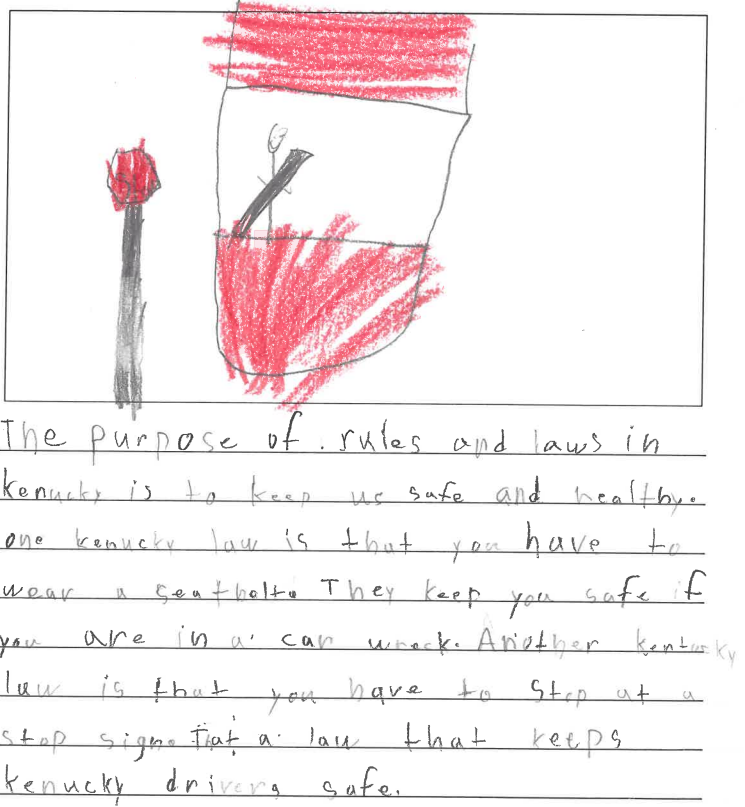 The purpose of. rules and laws in
kenucky is to keep us safe and healthy.
one kenucky law is that you have to
wear a seatbelt. They keep you safe if
you are in a car wreck. Another kentucky
law is that you have to stop at a
stop sign. That a law that keeps
kenucky drivers safe.